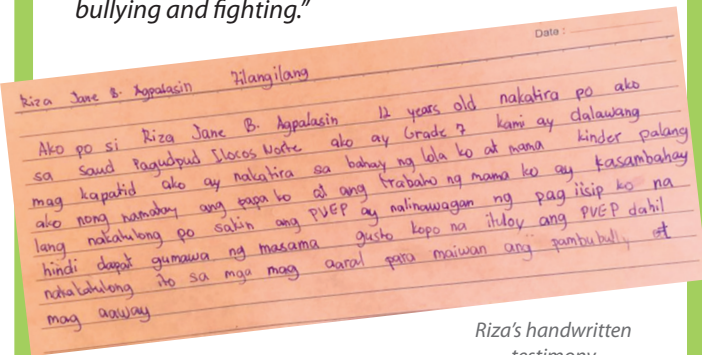 bullying and fighting.”
Date :
Riza Jane B. Agpalasin Ilangilang
Ako po si Riza Jane B. Agpalasin 12 years old nakatira po ako
sa Saud Pagudpud Ilocos Norte ako ay Grade 7 kami ay dalawang
mag kapatid ako ay nakatira sa bahay ng lola ko at mama kinder palang
ako nong namatay ang papa ko at ang trabaho ng mama ko ay kasambahay
lang nakatulong po sakin ang PVEP ay nalinawagan ng pag iisip ko na
hindi dapat gumawa ng masama gusto kopo na ituloy ang PVEP dahil
nakakatulong ito sa mga mag aaral para maiwan ang pambubully at
mag aaway
Riza’s handwritten
testimony